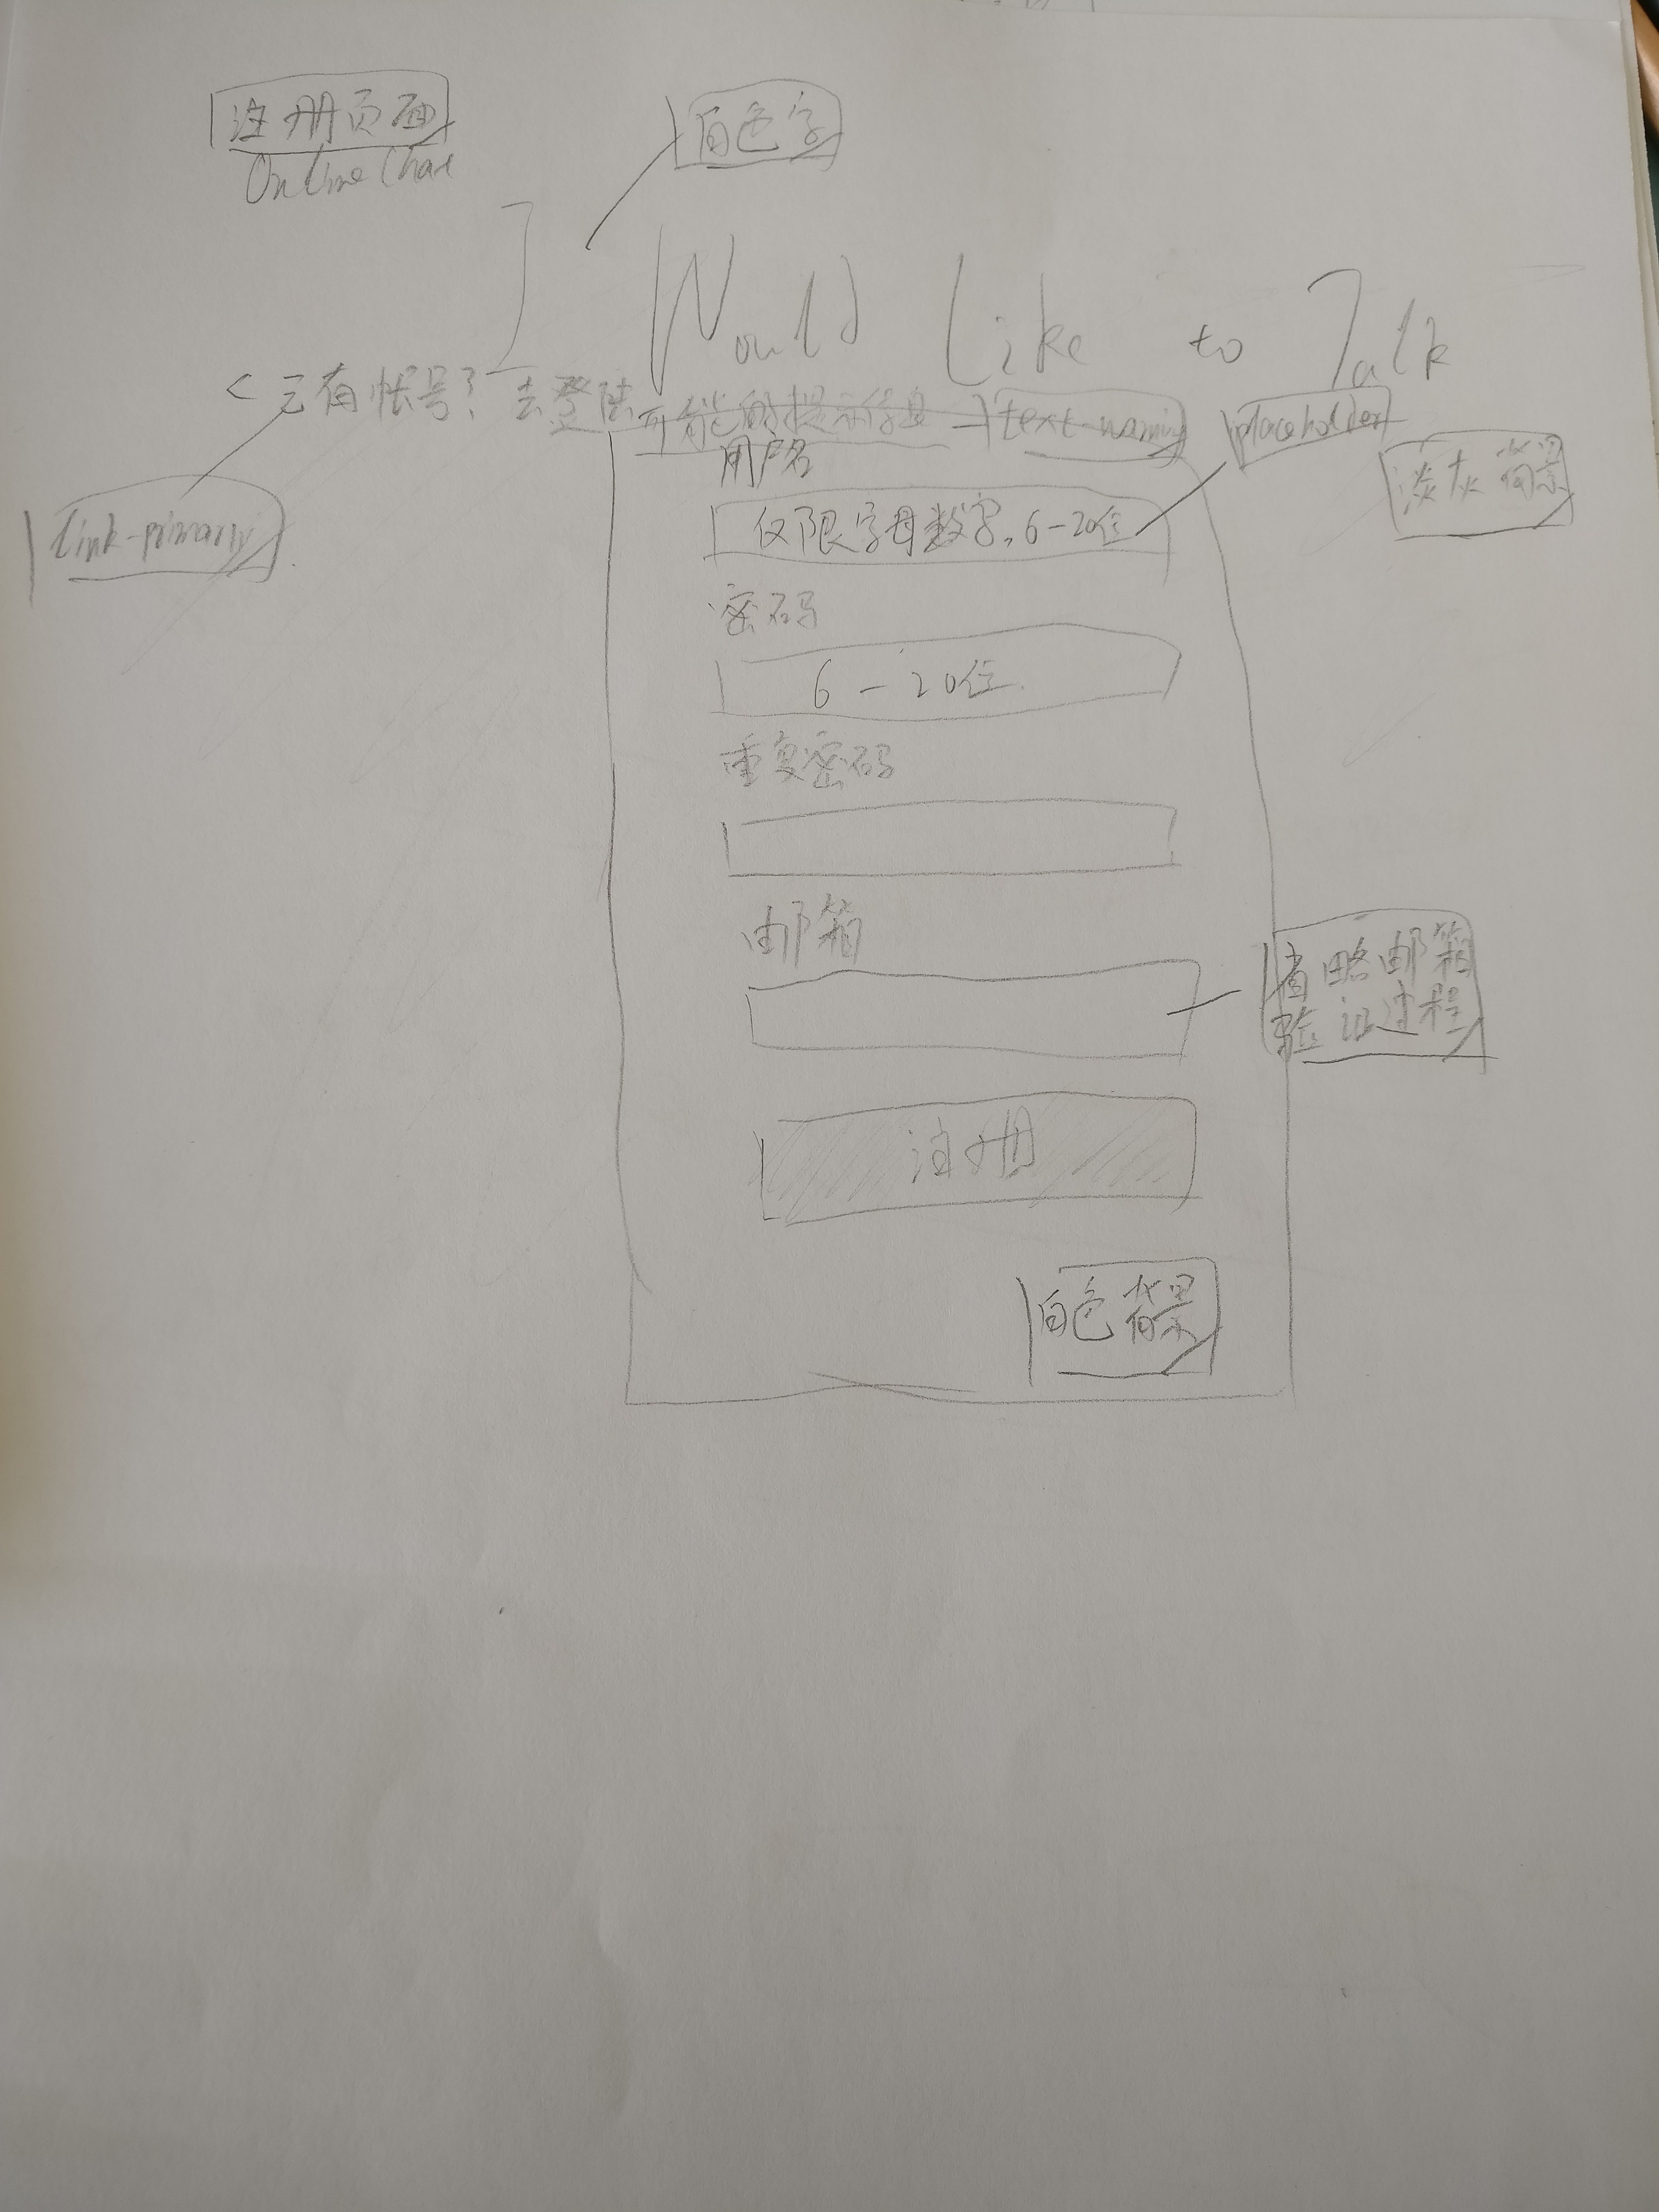 注册页面
Online Chat
白色字
Would Like to Talk
< 已有帐号? 去登陆
可能的提示信息
text-warning
placeholder
用户名
淡灰背景
link-primary
仅限字母数字,6-20位
密码
6-20位
重复密码
邮箱
省略邮箱
验证过程
注册
白色背景